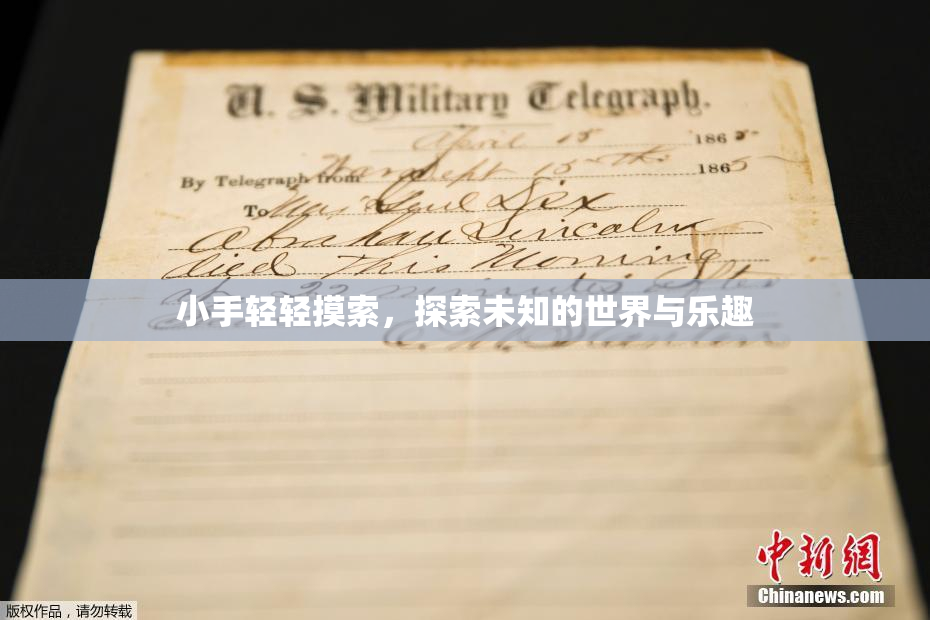 U. S. Military Telegraph.
April 15 1865
By Telegraph from War Dept 15th 1865
To Maj Genl Dix
Abraham Lincoln
died This Morning
22 minutes after
小手轻轻摸索，探索未知的世界与乐趣
E. M. Stanton
中新网
Chinanews.com
版权作品，请勿转载